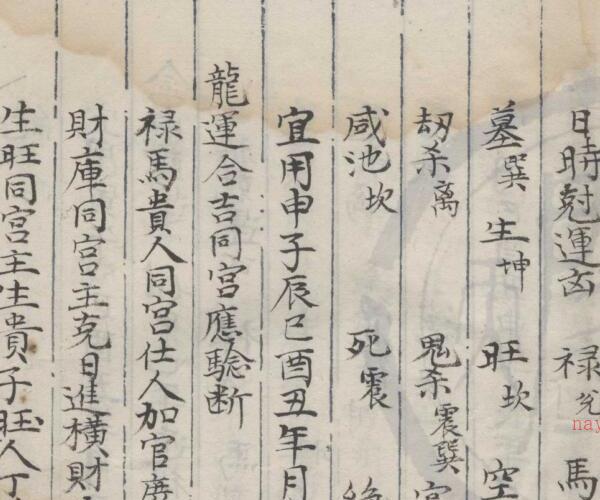 日時尅運凶 禄兌 馬
墓巽 生坤 旺坎 空
劫杀离 鬼杀震巽 官
咸池坎 死震 絶
宜用申子辰巳酉丑年月
龍運合吉同宮應驗断
禄馬貴人同宮仕人加官廣
財庫同宮主克日進橫財
生旺同宮主生貴子旺人丁
nay